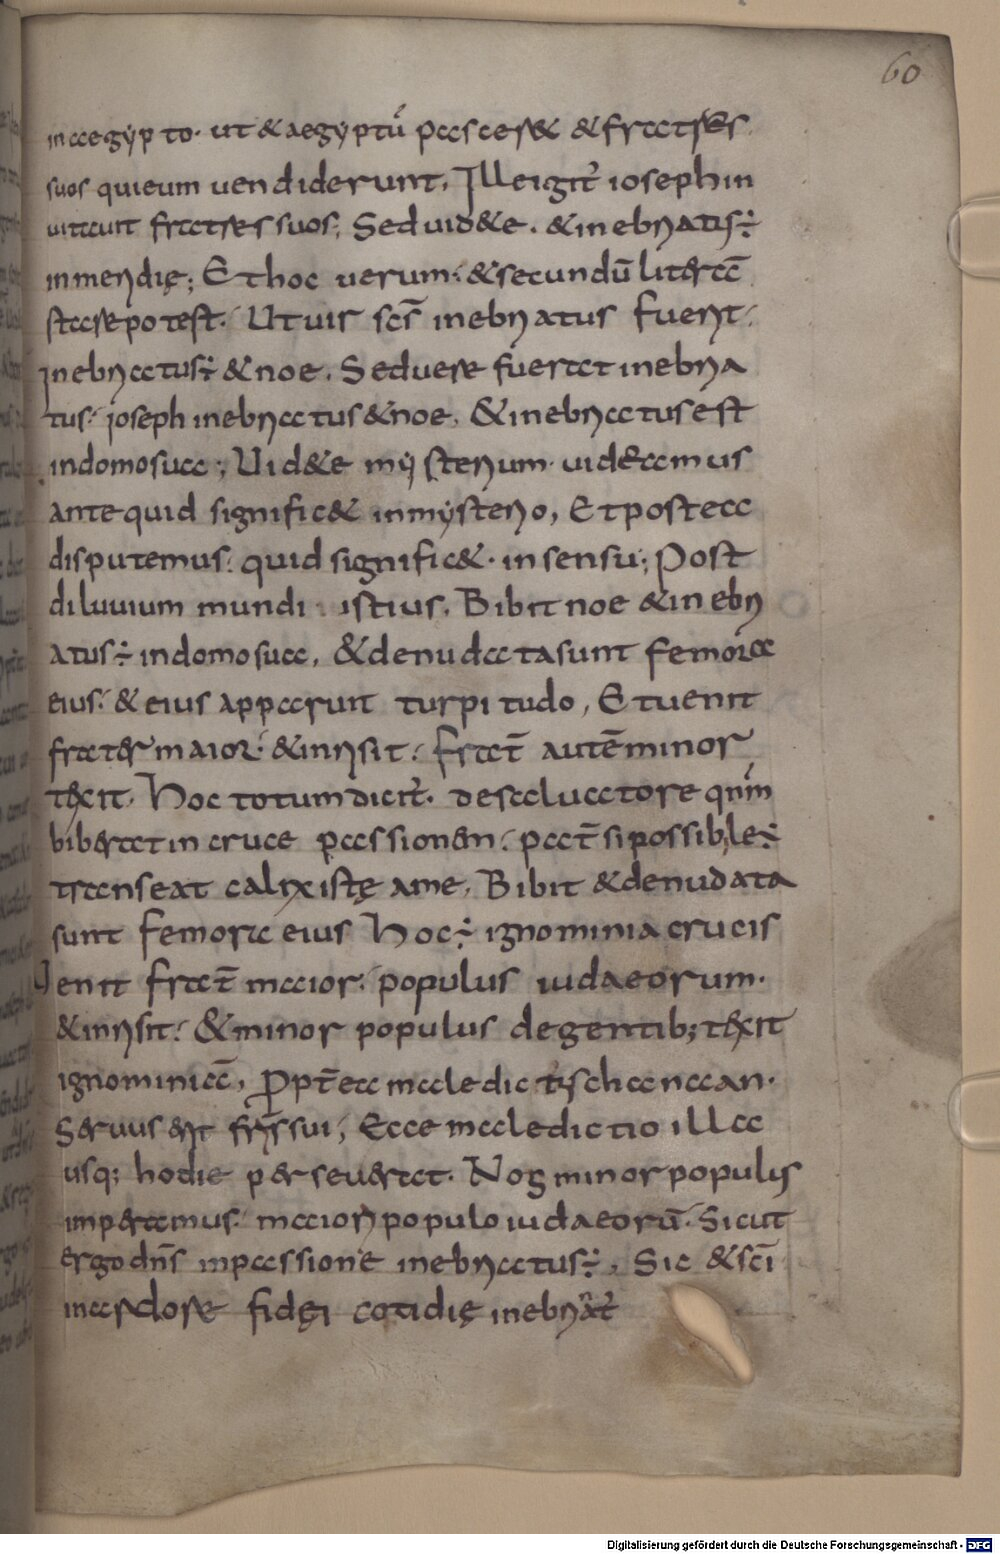 60
in aegypto. ut & aegyptū pasceret & fratres
suos qui eum uendiderunt. Ille igit̄ ioseph in
uitauit fratres suos; Sed uid&e. & inebriatus ÷
in meridie; Et hoc uerum. & secundū literā
stare potest. Ut uis scs̄ inebriatus fuerit.
inebriatus ÷ & noe. Sed uere fuerat inebria
tus. ioseph inebriatus & noe. & inebriatus est
in domo sua; Uid&e mysterium. uideamus
ante quid signific& in mysterio, Et postea
disputemus. quid signific& in sensu; Post
diluuium mundi istius. Bibit noe & inebri
atus ÷ in domo sua, & denudata sunt femora
eius. & eius apparuit turpitudo, Et uenit
frater maior. & inrisit. frat̄ autē minor
texit. Hoc totum dicit̄. de saluatore qm̄
biberat in cruce passionem. pat̄ si possibile ÷
transeat calix iste a me. Bibit & denudata
sunt femora eius Hoc ÷ ignominia crucis
Uenit frat̄ maior. populus iudaeorum.
& inrisit. & minor populus de gentib; texit
ignominiā, Propt̄ea maledictus chanaan.
Seruus erit fris̄ sui; Ecce maledictio illa
usq; hodie perseuerat. Nos minor populus
imperamus. maiori populo iudaeorū. Sicut
ergo dns̄ in passione inebriatus ÷, Sic & sci̅
in ardore fidei cotidie inebriat̄
Digitalisierung gefördert durch die Deutsche Forschungsgemeinschaft - DFG